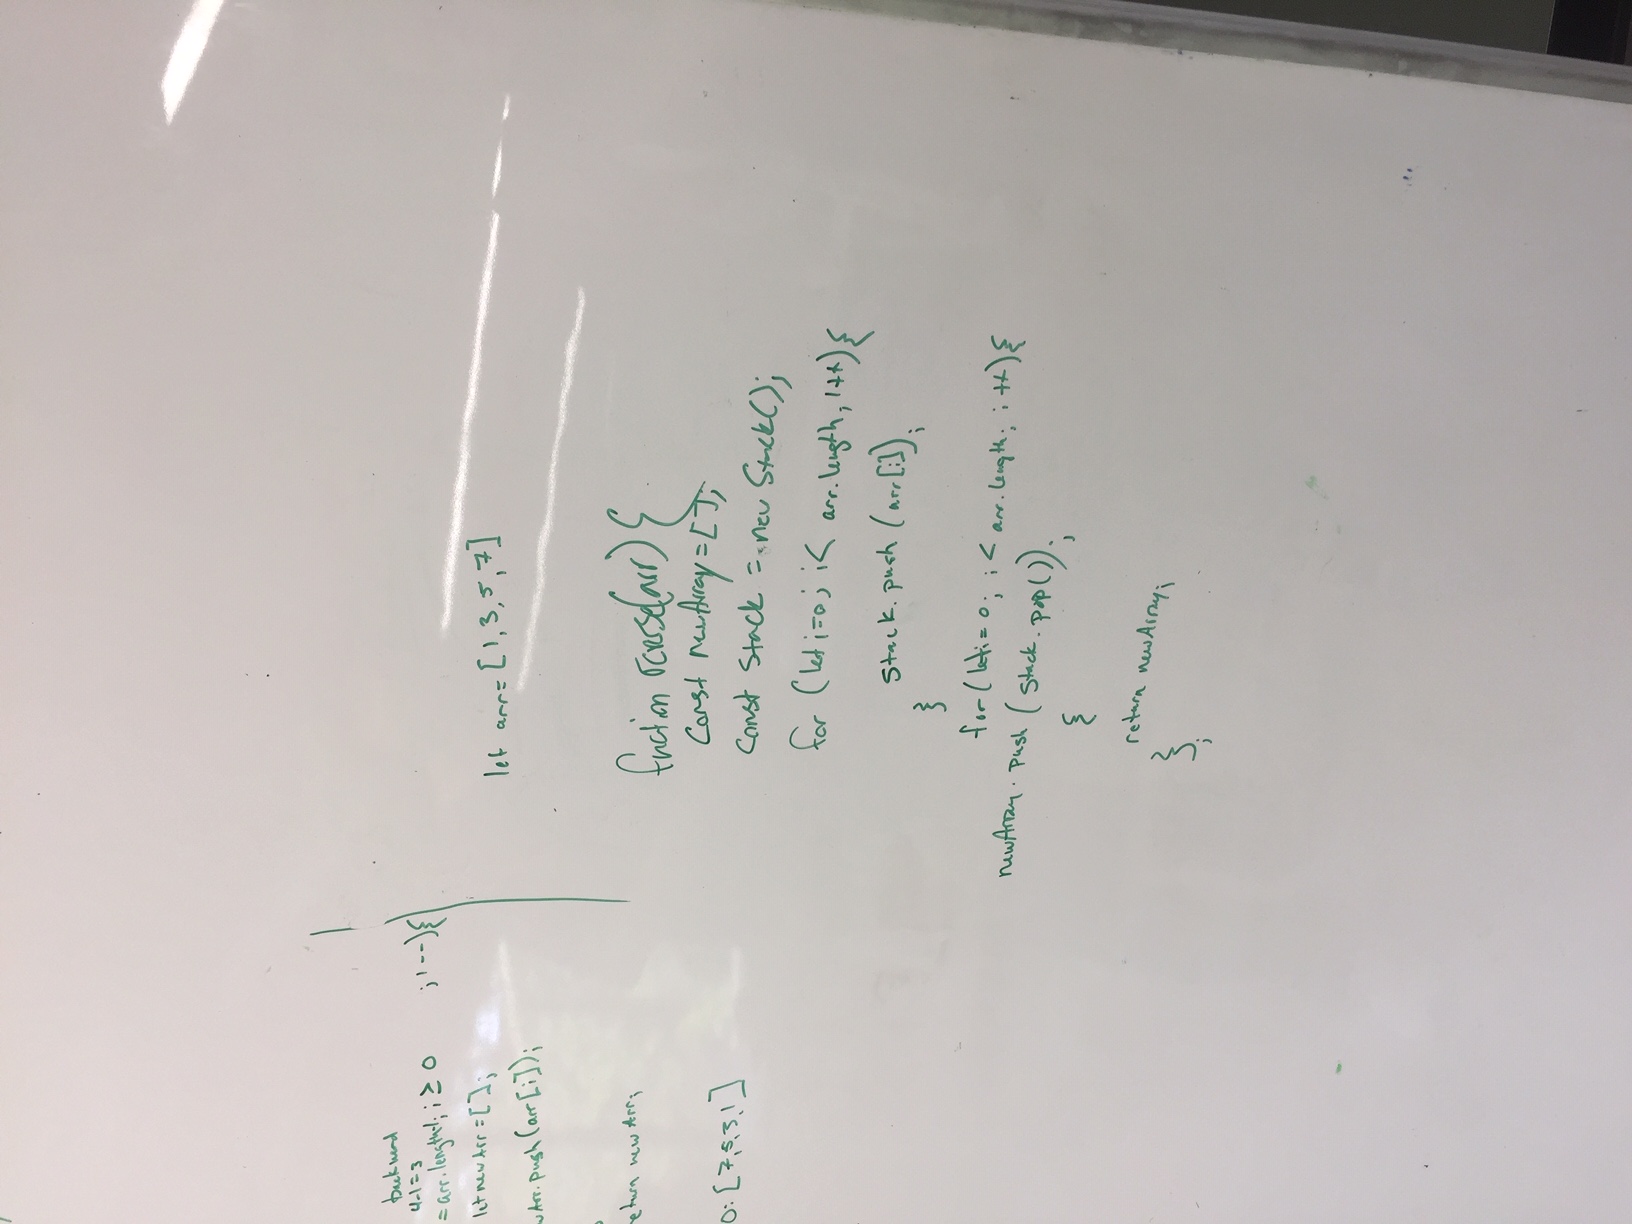 backward
4-1=3
= arr.length-1; i ≥ 0 ; i--){
let newArr = [];
wArr.push(arr[i]);
eturn newArr;
O: [7,5,3,1]
let arr= [1,3,5,7]
function reverse(arr) {
Const newArray = [];
Const Stack = new Stack();
for (let i=0; i< arr.length, i++){
Stack.push (arr[i]);
}
for (let i= 0; i < arr.length; i++){
newArray.push (Stack.pop());
{
return newArray;
};